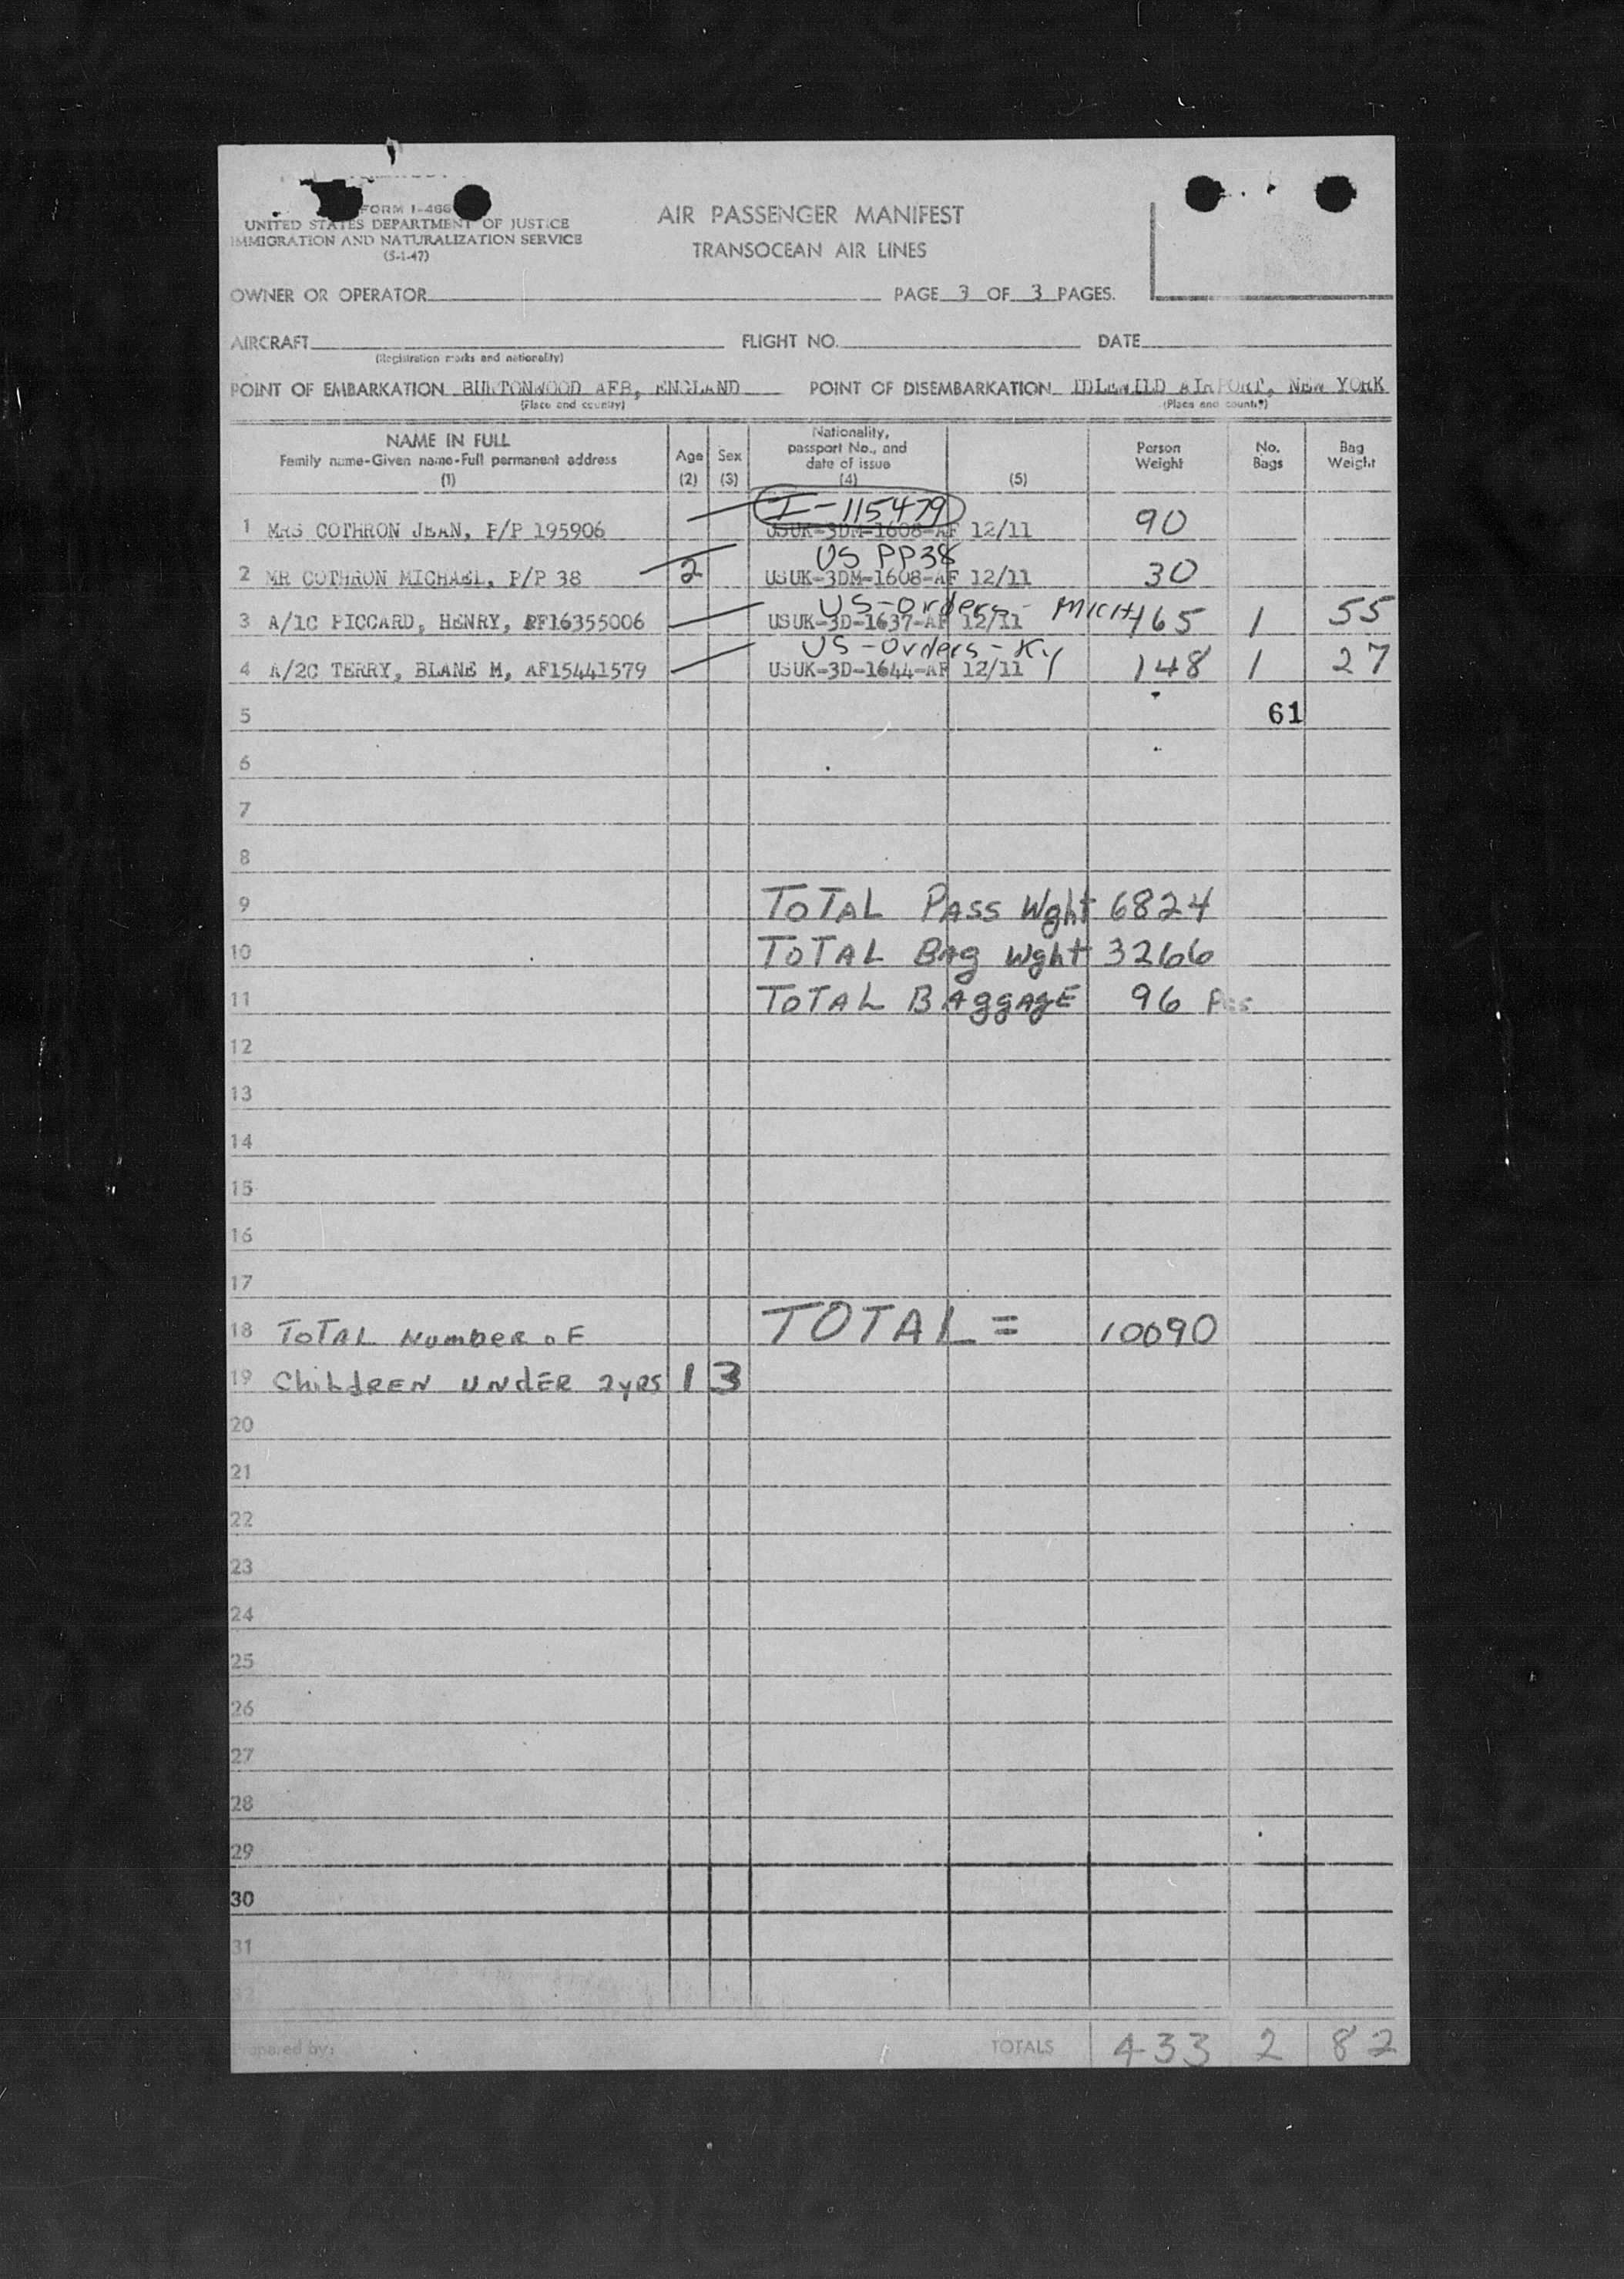 FORM I-466
UNITED STATES DEPARTMENT OF JUSTICE
IMMIGRATION AND NATURALIZATION SERVICE
(5-1-47)
AIR PASSENGER MANIFEST
TRANSOCEAN AIR LINES
OWNER OR OPERATOR PAGE 3 OF 3 PAGES.
AIRCRAFT FLIGHT NO. DATE
(Registration marks and nationality)
POINT OF EMBARKATION BURTONWOOD AFB, ENGLAND POINT OF DISEMBARKATION IDLEWILD AIRPORT, NEW YORK
(Place and country) (Place and country)
NAME IN FULL
Family name-Given name-Full permanent address
(1)
Age
(2)
Sex
(3)
Nationality,
passport No., and
date of issue
(4)
(5)
Person
Weight
No.
Bags
Bag
Weight
I-115479
1 MRS COTHRON JEAN, P/P 195906 USUK-3DM-1608-AF 12/11 90
US PP38
2 MR COTHRON MICHAEL, P/P 38 2 USUK-3DM-1608-AF 12/11 30
US-Orders - MICH
3 A/1C PICCARD, HENRY, AF16355006 USUK-3D-1637-AF 12/11 165 1 55
US-Orders-Ky
4 A/2C TERRY, BLANE M, AF15441579 USUK-3D-1644-AF 12/11 148 1 27
5 61
6
7
8
9 TOTAL PASS Wght 6824
10 TOTAL BAg Wght 3266
11 TOTAL BAggAgE 96 Pcs
12
13
14
15
16
17
18 TOTAL NumbER oF TOTAL = 10090
19 ChiLdREN UNdER 2yRS 13
20
21
22
23
24
25
26
27
28
29
30
31
32
Prepared by: TOTALS 433 2 82